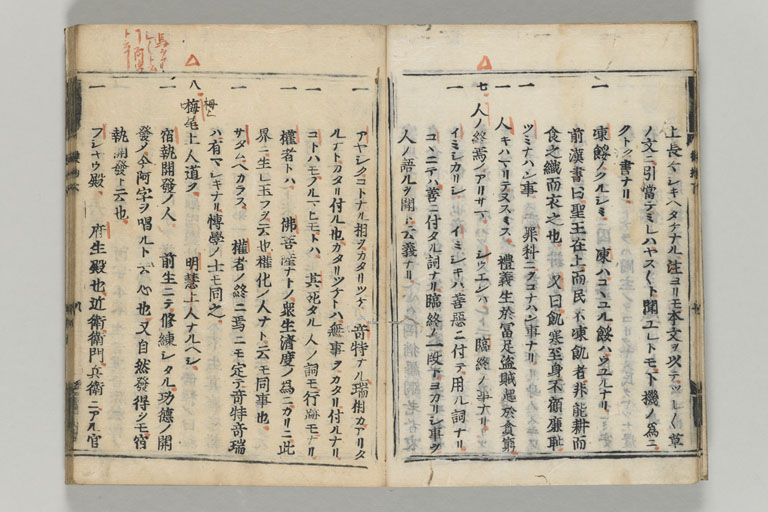 上長マシキヘタテナル注ヨリモ本文ヲ以テツレ〱草
ノ文ニ引當テミレハヤス〱ト聞ユレトモ下機ノ爲ニ
クトク書ナリ
一 凍餒ノクルシミ 凍ハコヽユル餒ハウユルナリ
前漢書曰聖王在上而民不凍飢者非能耕而
食之織而衣之也 又曰飢寒至身不顧廉耻
一 人キハマリテヌスミス 禮義生於富足盜賊起於貧窮
一 ツミナハン事 罪科ニヲコナハン事ナリ
七 人ノ終焉ノアリサマ シウエンハ 臨終ノ事ナリ
一 イミシカリシ イミシキハ善惡ニ付テ用ル詞ナリ
コヽニテハ善ニ付タル詞ナリ臨終ノ一段トヨカリシ事ヲ
人ノ語ルヲ聞ト云義ナリ
一 アヤシクコトナル相ヲカタリツケ 奇特アル瑞相カアリタ
ルナトカタリ付ル也カタリツケトハ無事ヲカタリ付ルナリ
一 コトハモフルマヒモトハ 其死タル人ノ詞モ行跡モナリ
一 權者トハ 佛菩薩ナトノ衆生濟度ノ爲ニカリニ此
界ニ生レ玉フヲ云也權化ノ人ナト云モ同事也
サタムヘカラス 權者ノ終ニ焉ニモ定テ奇特奇瑞
ハ有マシキナリ愽學ノ士モ同之
八 栂尾上人道ヲ 明慧上人ナルヘシ
一 宿執開發ノ人 前生ニテ修練シタル功德ノ開
發ノ今阿字ヲ唱ルト云心也又自然發得シモ宿
執開發ト云也
一 フシヤウ殿 府生殿也近衛衛門兵衛ニアル官